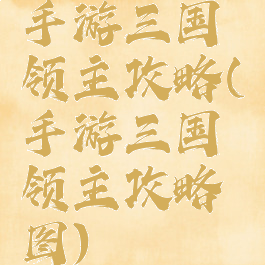 手游三国
领主攻略(
手游三国
领主攻略
图)